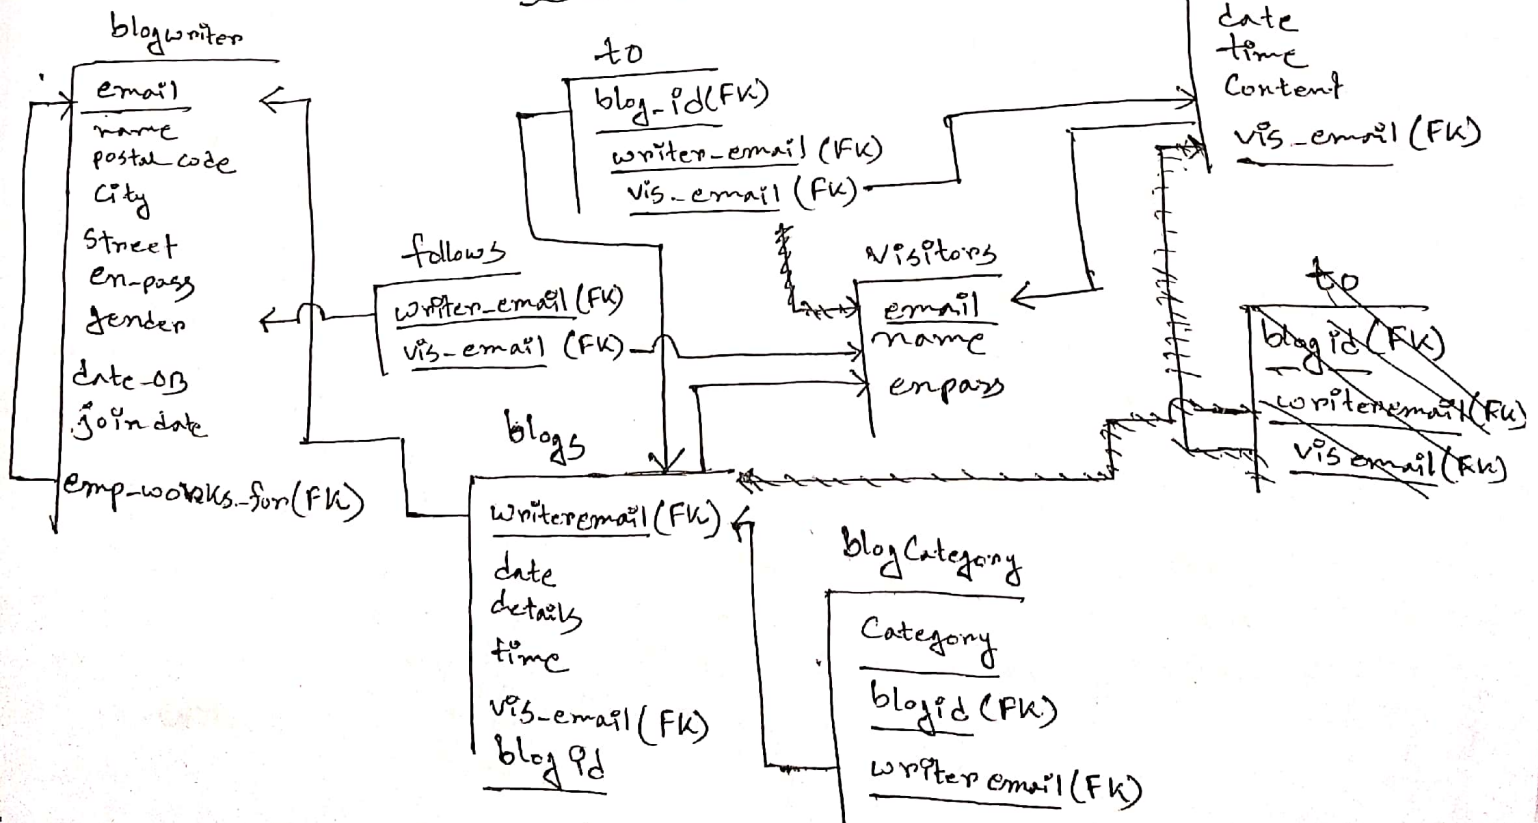 blogwriter
email
name
postal code
city
street
en-pass
gender
date-OB
join date
emp-works-for(FK)
to
blog-id(FK)
writer-email (FK)
vis-email (FK)
follows
writer-email (FK)
vis-email (FK)
visitors
email
name
enpass
date
time
Content
vis-email (FK)
to
blog id (FK)
writeremail (FK)
vis email (FK)
blogs
writeremail (FK)
date
details
time
vis-email (FK)
blog id
blog Category
Category
blogid (FK)
writer email (FK)